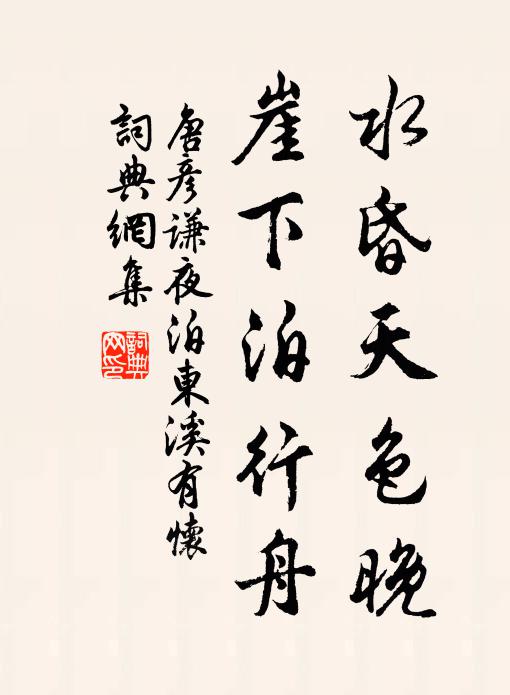 水昏天色晚
崖下泊行舟
唐彥謙夜泊東溪有懷
詞典網集
詞典網印